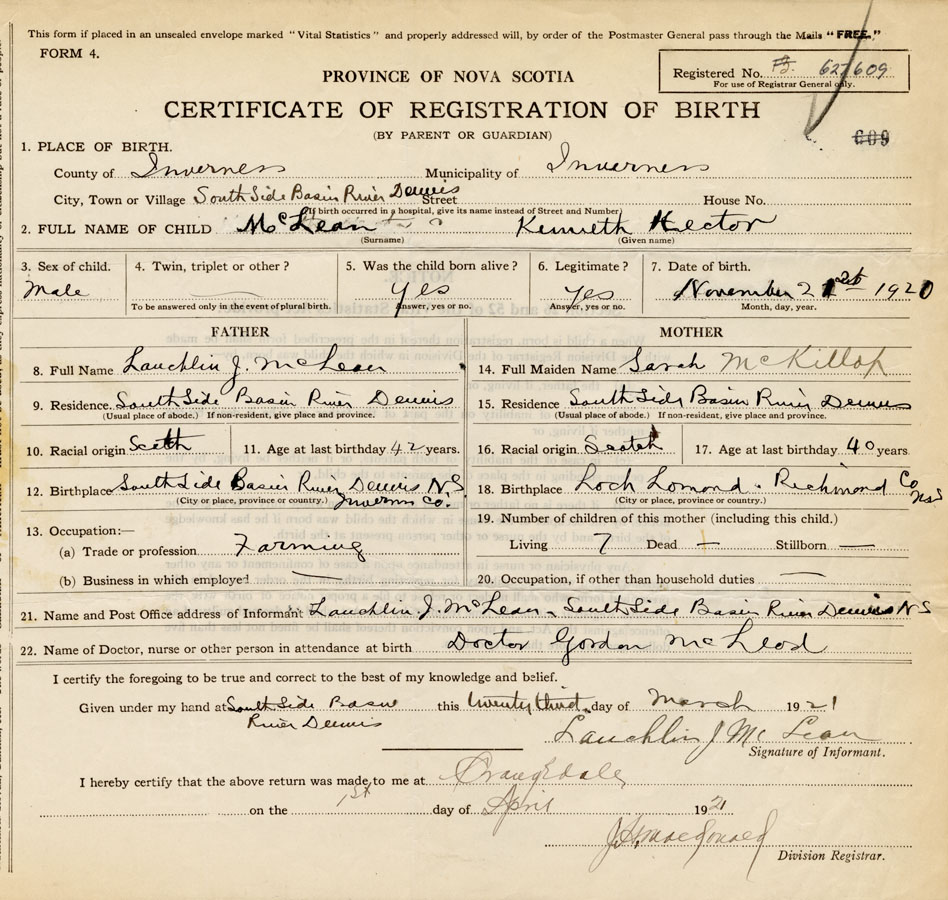 This form if placed in an unsealed envelope marked "Vital Statistics" and properly addressed will, by order of the Postmaster General pass through the Mails "FREE."
FORM 4.
PROVINCE OF NOVA SCOTIA
Registered No. 627609
For use of Registrar General only.
CERTIFICATE OF REGISTRATION OF BIRTH
(BY PARENT OR GUARDIAN)
609
1. PLACE OF BIRTH.
County of Inverness Municipality of Inverness
City, Town or Village South Side Basin River Dennis Street House No.
(If birth occurred in a hospital, give its name instead of Street and Number)
2. FULL NAME OF CHILD McLean Kenneth Hector
(Surname) (Given name)
3. Sex of child. 4. Twin, triplet or other? 5. Was the child born alive? 6. Legitimate? 7. Date of birth.
Male Yes Yes November 21st 1920
To be answered only in the event of plural birth. Answer, yes or no. Answer, yes or no. Month, day, year.
FATHER
8. Full Name Lauchlin J. McLean
9. Residence South Side Basin River Dennis
(Usual place of abode.) If non-resident, give place and province.
10. Racial origin Scotch 11. Age at last birthday 42 years.
12. Birthplace South Side Basin River Dennis N.S.
(City or place, province or country.) Inverness Co.
13. Occupation:—
(a) Trade or profession Farming
(b) Business in which employed —
MOTHER
14. Full Maiden Name Sarah McKillop
15. Residence South Side Basin River Dennis
(Usual place of abode.) If non-resident, give place and province.
16. Racial origin Scotch 17. Age at last birthday 40 years
18. Birthplace Loch Lomond. Richmond Co NS
(City or place, province or country.)
19. Number of children of this mother (including this child.)
Living 7 Dead — Stillborn —
20. Occupation, if other than household duties —
21. Name and Post Office address of Informant Lauchlin J. McLean - South Side Basin River Dennis N S
22. Name of Doctor, nurse or other person in attendance at birth Doctor Gordon McLeod
I certify the foregoing to be true and correct to the best of my knowledge and belief.
Given under my hand at South Side Basin this twenty third day of March 1921
River Dennis
Lauchlin J McLean
Signature of Informant.
I hereby certify that the above return was made to me at Craigdale
on the 1st day of April 1921
J. H. MacDonald
Division Registrar.